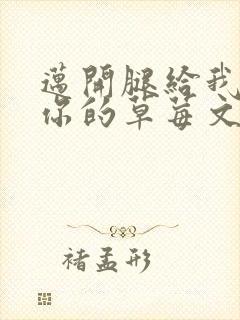 邁開腿給我
你的草莓文
褚孟形